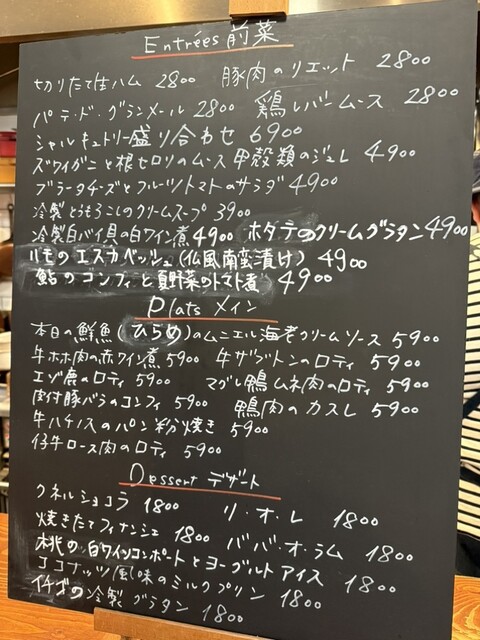 Entrées 前菜
切りたて生ハム 2800 豚肉のリエット 2800
パテ・ド・グランメール 2800 鶏レバームース 2800
シャルキュトリー盛り合わせ 6900
ズワイガニと根セロリのムース 甲殻類のジュレ 4900
ブラータチーズとフルーツトマトのサラダ 4900
冷製とうもろこしのクリームスープ 3900
冷製白バイ貝の白ワイン煮 4900 ホタテのクリームグラタン 4900
ハモのエスカベッシュ(仏風南蛮漬け) 4900
鮎のコンフィと夏野菜のトマト煮 4900
Plats メイン
本日の鮮魚(ひらめ)のムニエル海老クリームソース 5900
牛ホホ肉の赤ワイン煮 5900 牛ザブトンのロティ 5900
エゾ鹿のロティ 5900 マグレ鴨ムネ肉のロティ 5900
骨付豚バラのコンフィ 5900 鴨肉のカスレ 5900
牛ハチノスのパン粉焼き 5900
仔牛ロース肉のロティ 5900
Dessert デザート
クネルショコラ 1800 リ・オ・レ 1800
焼きたてフィナンシェ 1800 ババ・オ・ラム 1800
桃の白ワインコンポートとヨーグルトアイス 1800
ココナッツ風味のミルクプリン 1800
イチゴの冷製グラタン 1800